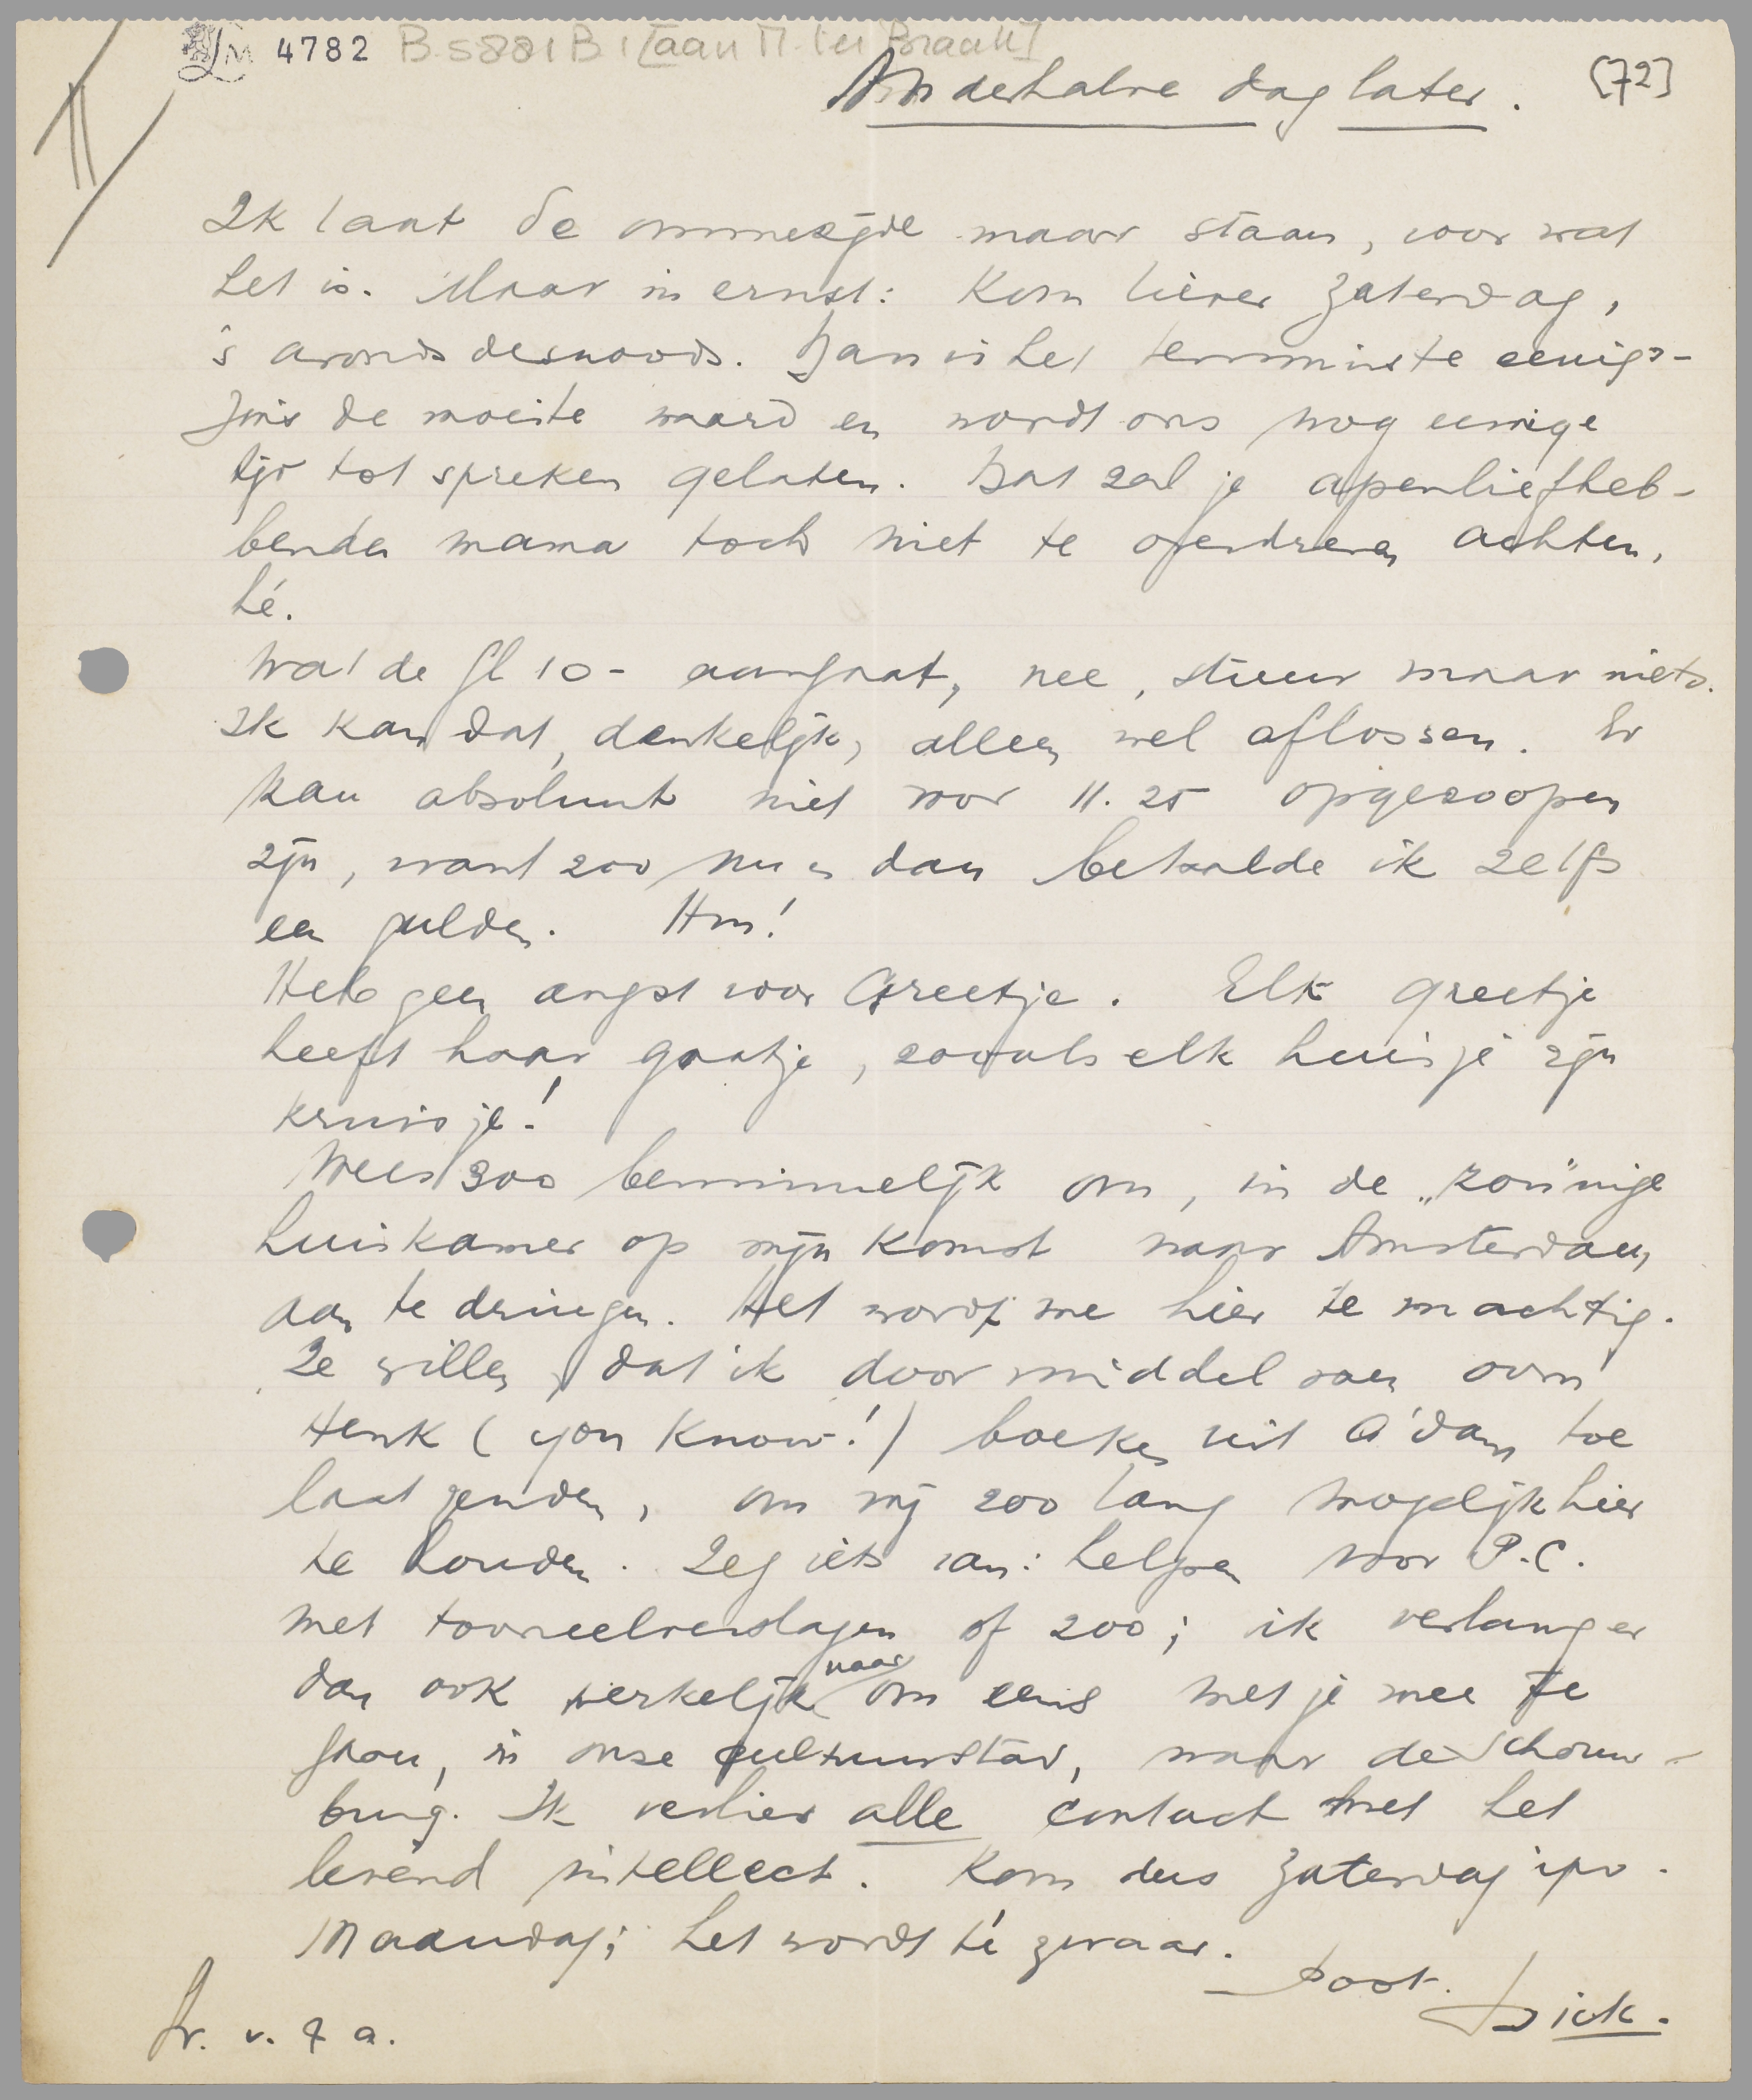 LM 4782 B 5881 B 1 [aan M. ter Braak]
Anderhalve dag later. [72]
II
Ik laat de ommezijde maar staan, voor wat
het is. Maar in ernst: Kom liever Zaterdag,
's avonds desnoods. Dan is het tenminste eenigs-
zins de moeite waard en wordt ons nog eenige
tijd tot spreken gelaten. Dat zal je apenliefheb-
bende mama toch niet te overdreven achten,
hé.
Wat de fl 10- aangaat, nee, stuur maar niets.
Ik kan dat, denkelijk, alleen wel aflossen. Er
kan absoluut niet voor 11.25 opgezoopen
zijn, want zoo nu en dan betaalde ik zelfs
een gulden. Hm!
Heb geen angst voor Greetje. Elk Greetje
heeft haar gaatje, zooals elk huisje zijn
kruisje!
Wees zoo beminnelijk om, in de „zonnige"
huiskamer op mijn komst naar Amsterdam
aan te dringen. Het wordt me hier te machtig.
Ze willen, dat ik door middel van oom
Henk (you know!) boeken uit A'dam toe
laat zenden, om mij zoo lang mogelijk hier
te houden. Zeg iets van: helpen voor P.C.
met tooneelverslagen of zoo; ik verlang er
dan ook werkelijk naar om eens met je mee te
gaan, in onze cultuurstad, naar de Schouw-
burg. Ik verlies alle contact met het
levend intellect. Kom dus Zaterdag ipv.
Maandag; het wordt té zwaar.
Dick.
v. & a.